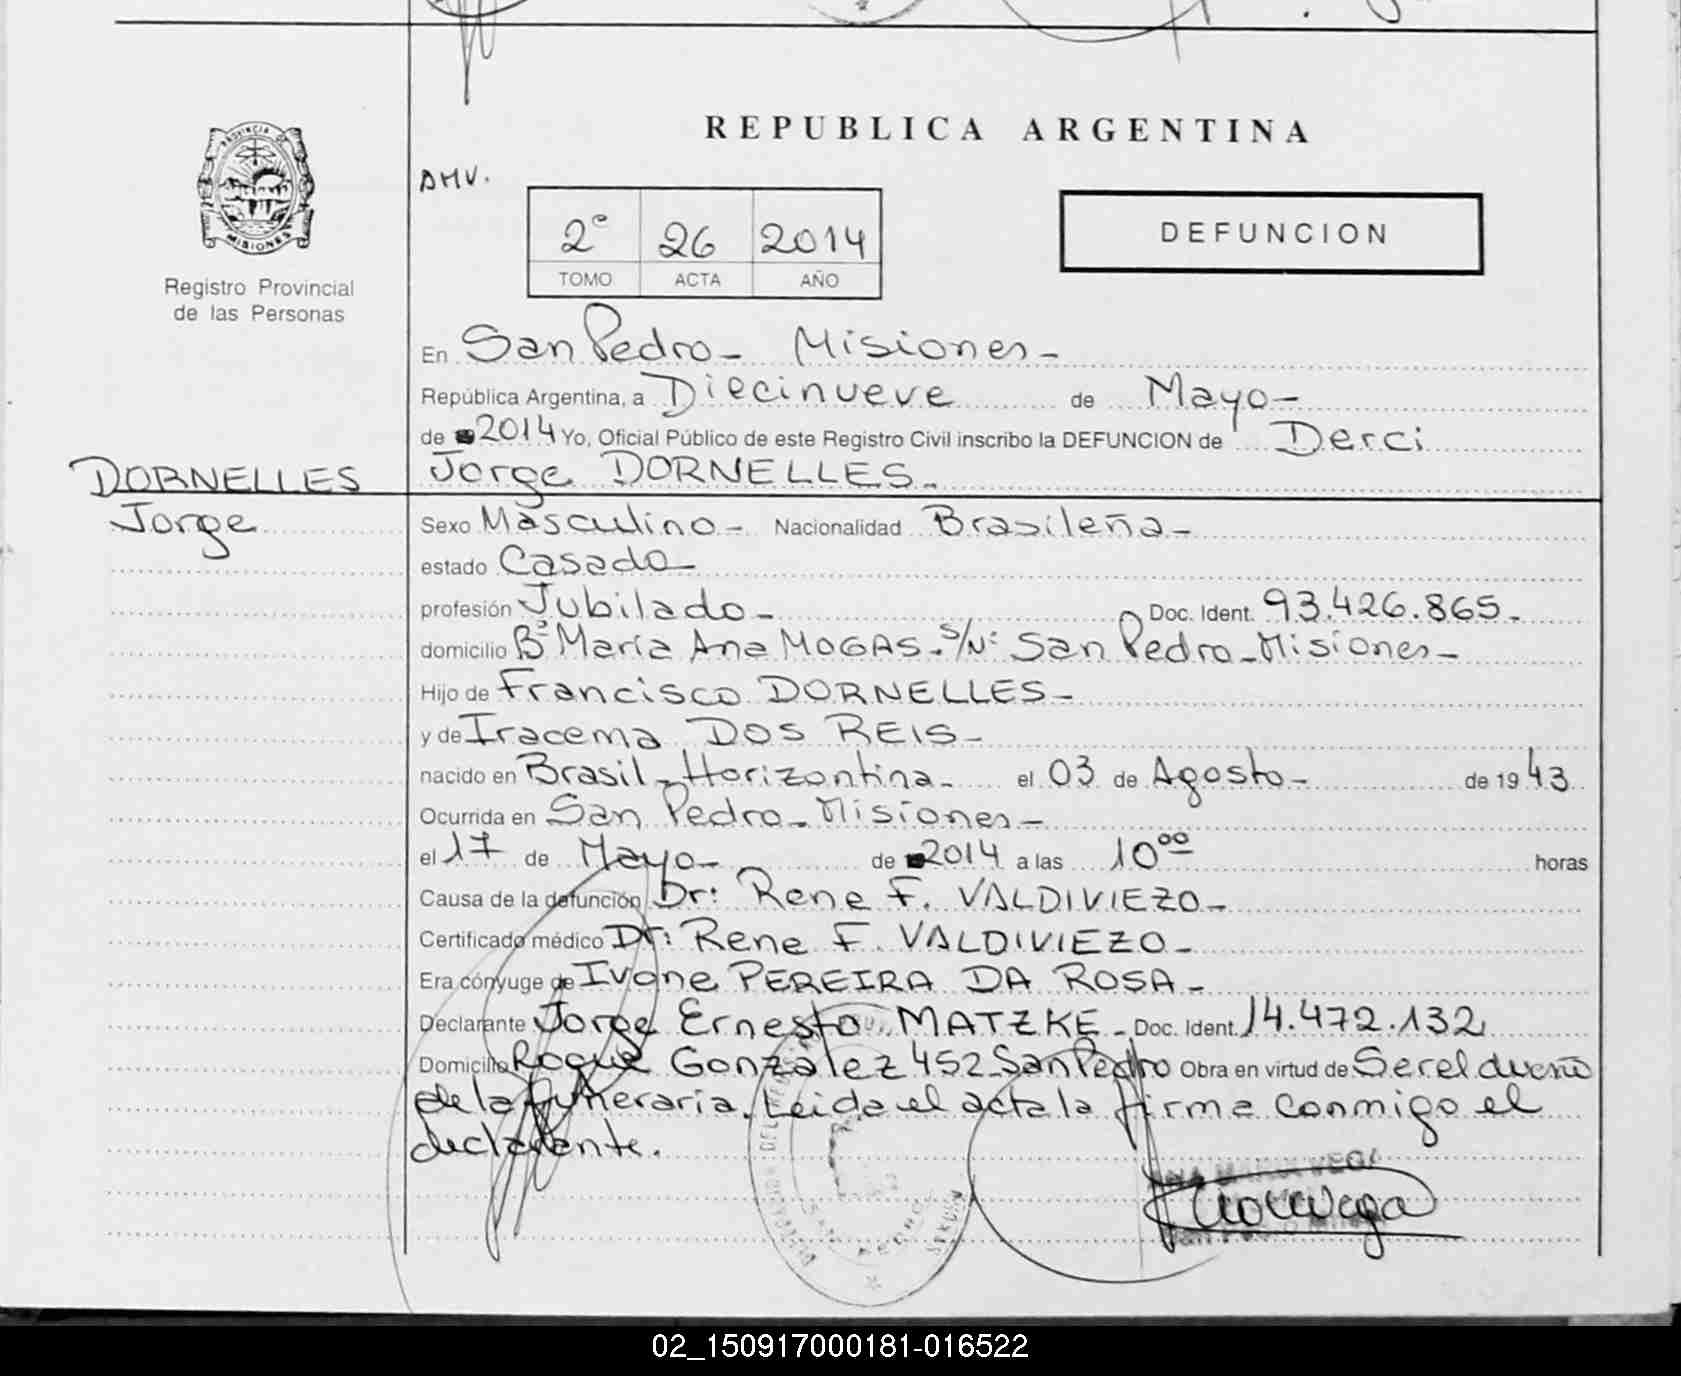 REPUBLICA ARGENTINA
PROVINCIA DE
MISIONES
Registro Provincial
de las Personas
AMV.
2º 26 2014
TOMO ACTA AÑO
DEFUNCION
En San Pedro - Misiones -
República Argentina, a Diecinueve de Mayo -
de 2014 Yo, Oficial Público de este Registro Civil inscribo la DEFUNCION de Derci
DORNELLES Jorge DORNELLES.
Jorge
Sexo Masculino - Nacionalidad Brasileña -
estado Casado
profesión Jubilado - Doc. Ident. 93.426.865.
domicilio Bº María Ana MOGAS. S/Nº San Pedro - Misiones -
Hijo de Francisco DORNELLES -
y de Iracema DOS REIS -
nacido en Brasil - Horizontina - el 03 de Agosto - de 1943
Ocurrida en San Pedro - Misiones -
el 17 de Mayo - de 2014 a las 10ºº horas
Causa de la defunción Dr: Rene F. VALDIVIEZO -
Certificado médico Dr: Rene F. VALDIVIEZO -
Era cónyuge de Ivone PEREIRA DA ROSA -
Declarante Jorge Ernesto MATZKE - Doc. Ident. 14.472.132
Domicilio Roque Gonzalez 452 San Pedro Obra en virtud de Ser el dueño
de la funeraria. Leida el acta la firma conmigo el
declarante.
02_150917000181-016522